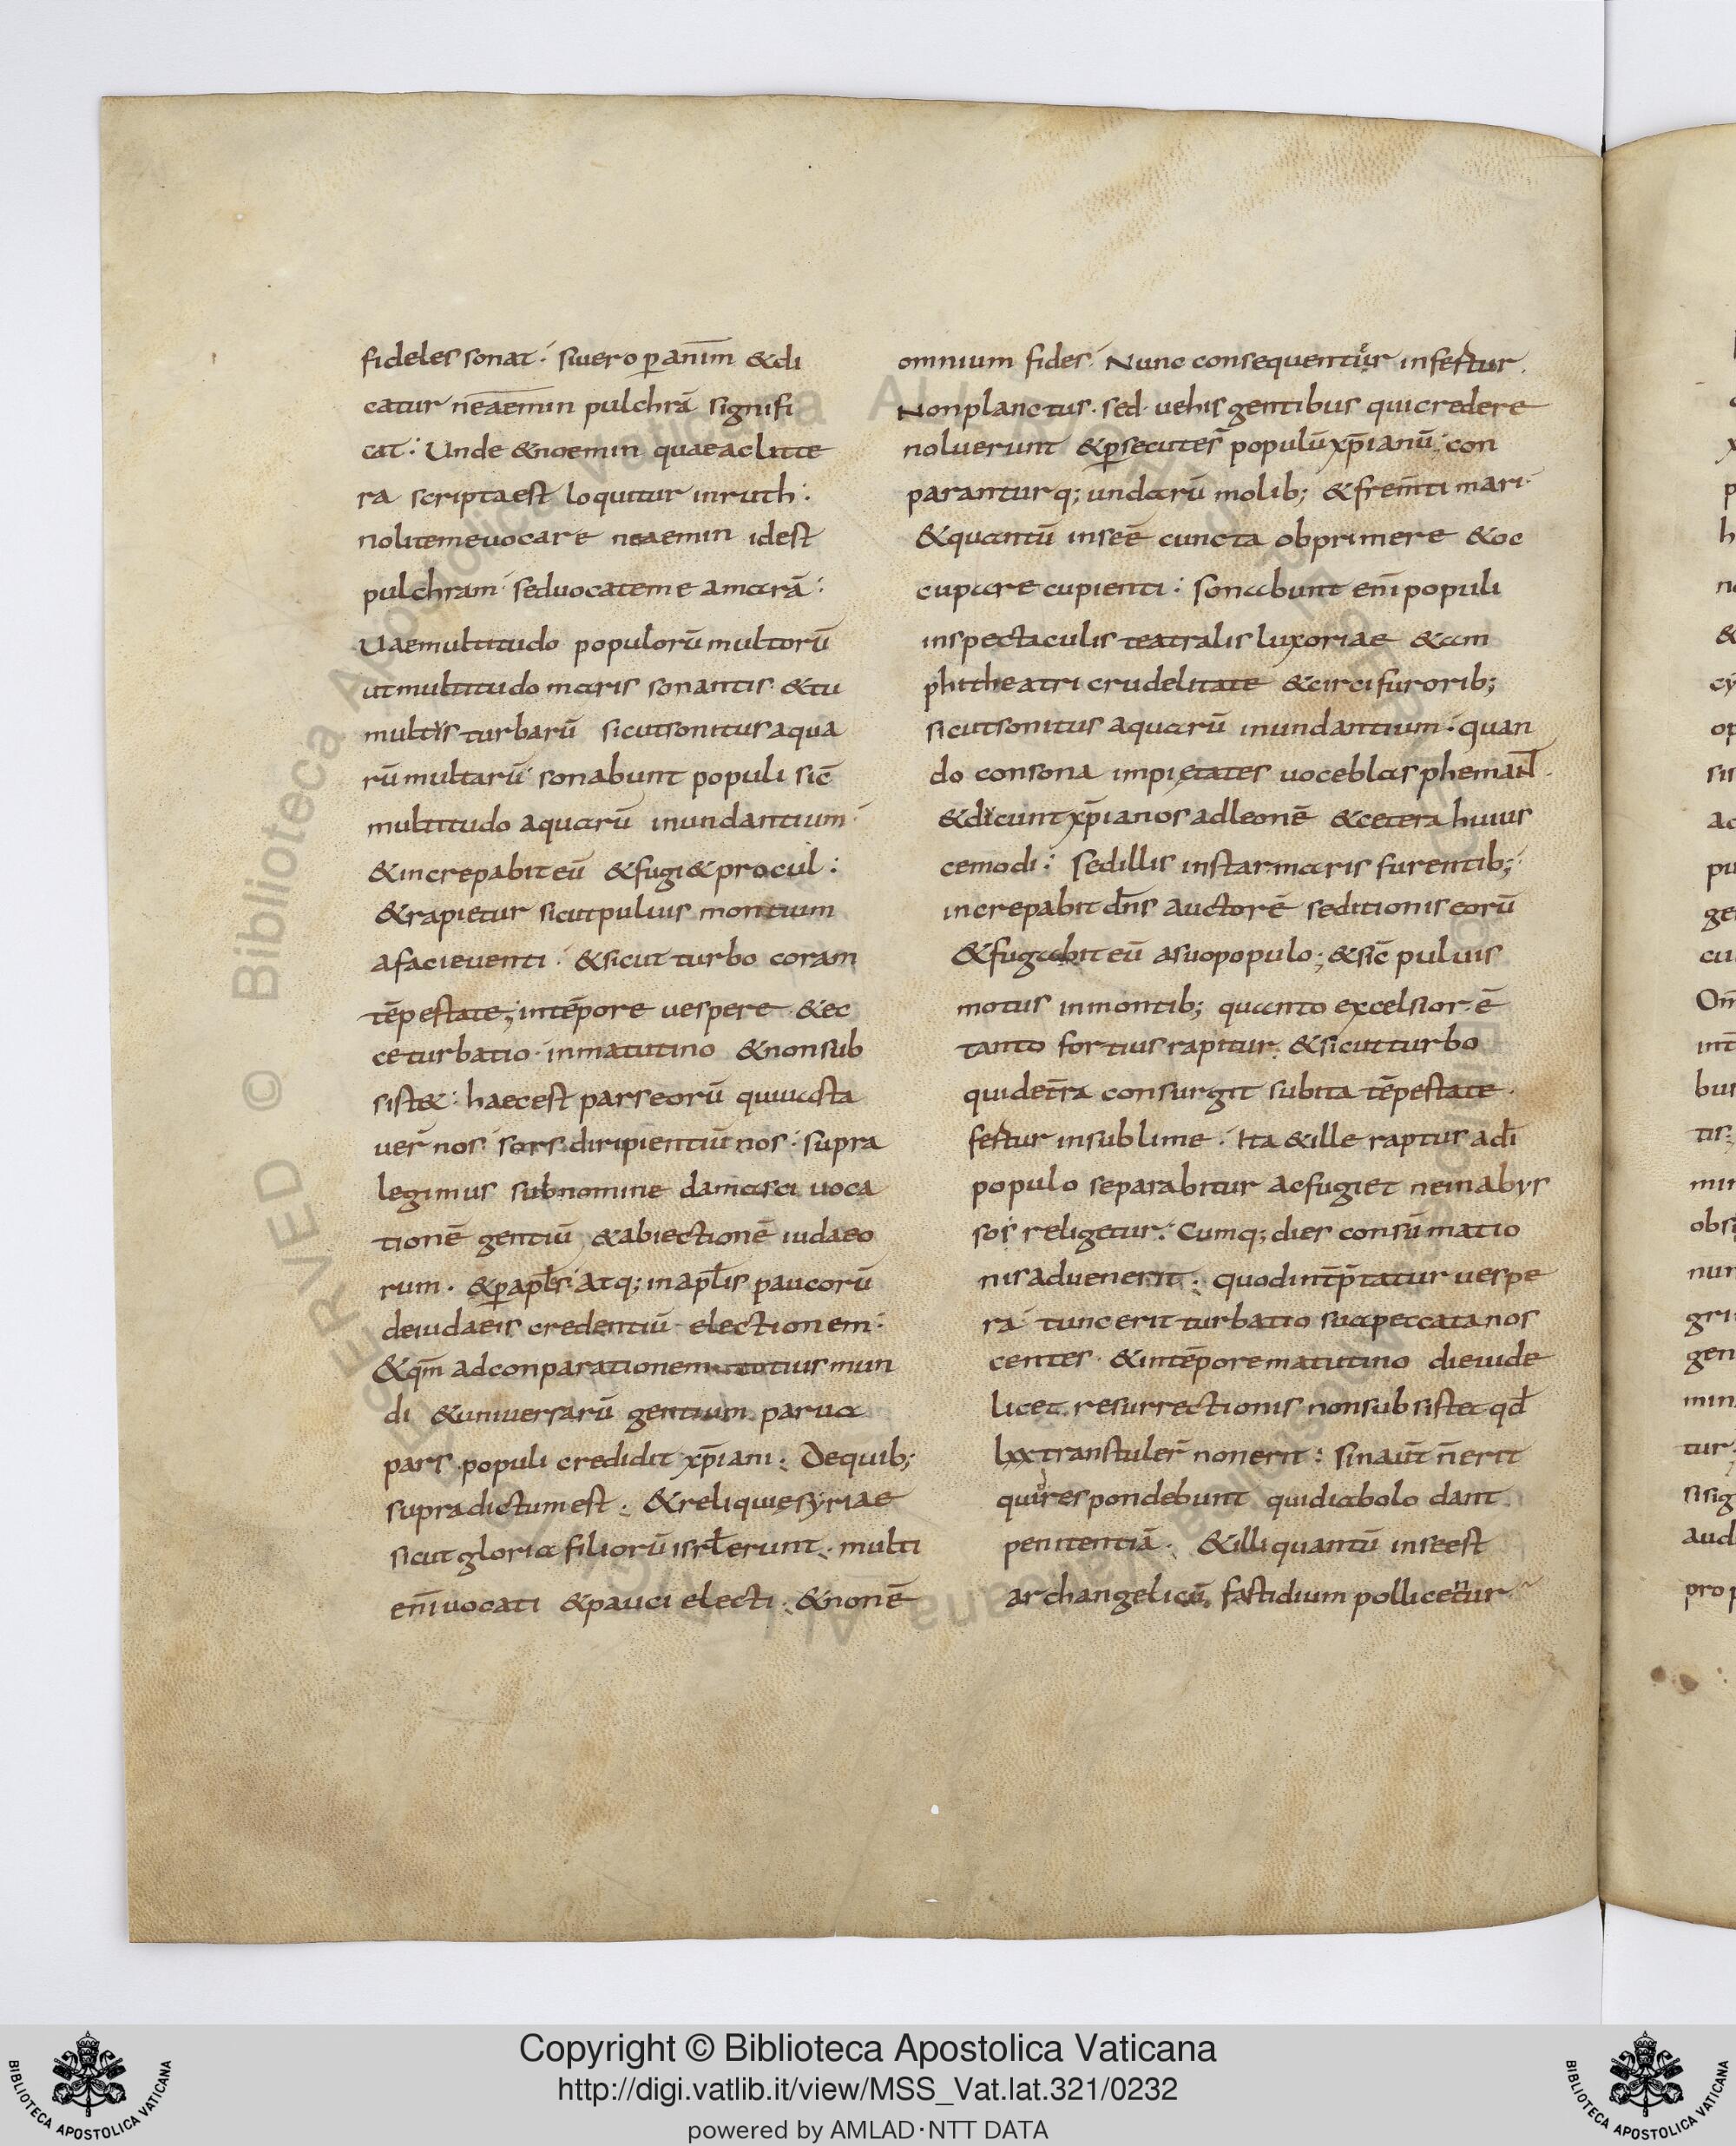 fideles sonat · si uero p anim̄ & di
catur neaemin pulchrā signifi
cat : Unde & noemin quae ac litte
ra scripta est loquitur in ruth :
nolite me uocare neaemin idest
pulchram · sed uocate me amarā :
Uae multitudo populorū multorū
ut multitudo maris sonantis · & tu
multus turbarū sicut sonitus aqua
rū multarū · sonabunt populi sic̄
multitudo aquarū inundantium ·
& increpabit eū & fugi& procul :
& rapietur sicut puluis montium
a facie uenti · & sicut turbo coram
tēpestate ; in tēpore uespere & ec
ce turbatio · in matutino & non sub
sist& : haec est pars eorū qui uasta
uer̄ nos · sors diripientiū nos · supra
legimus sub nomine damasci uoca
tionē gentiū & abiectionē iudaeo
rum · & p apl̄s atq; in apl̄is paucorū
de iudaeis credentiū electionem :
& qm̄ ad conparationem totius mun
di & uniuersarū gentium parua
pars populi credidit xp̄iani : De quib;
supra dictum est : & reliquię syriae
sicut gloria filiorū isrl̄ erunt : multi
eni̅ uocati & pauci electi : & non ē
omnium fides · Nunc consequentur infertur ·
Non planctus · sed uehis gentibus qui credere
noluerunt & psecuter̄ populū xp̄ianū : con
paranturq; undarū molib; & frem̄ti mari ·
& quantū in se ē cuncta obprimere & oc
cupare cupienti : sonabunt eni̅ populi
in spectaculis teatralis luxoriae & am
phitheatri crudelitate & circi furorib;
sicut sonitus aquarū inundantium : quan
do consona impietates uoce blasphemant ·
& dicunt xp̄ianos ad leonē & cetera huius
cemodi : Sed illis instar maris furentib;
increpabit dn̄s auctorē seditionis eorū
& fugabit eū a suo populo ; & sic̄ puluis
motus in montib; quanto excelsior ē
tanto fortius rapitur · & sicut turbo
qui de tr̄a consurgit subita tēpestate ·
fertur in sublime · Ita & ille raptus a dī
populo separabitur ac fugiet ne in abys
sos religetur : Cumq; dies consūmatio
nis aduenerit : quod int̄p̄tatur uespe
ra · tunc erit turbatio sua peccata nos
centes · & in tēpore matutino die uide
licet resurrectionis non subsistet qd̄
lxx transtuler̄ non erit : sin aut̄ n̄ erit
qui respondebunt qui diabolo dant
penitentiā : & illi quantū in se est
archangelicū fastidium pollicentur
Copyright © Biblioteca Apostolica Vaticana
http://digi.vatlib.it/view/MSS_Vat.lat.321/0232
powered by AMLAD·NTT DATA
BIBLIOTECA APOSTOLICA VATICANA
BIBLIOTECA APOSTOLICA VATICANA